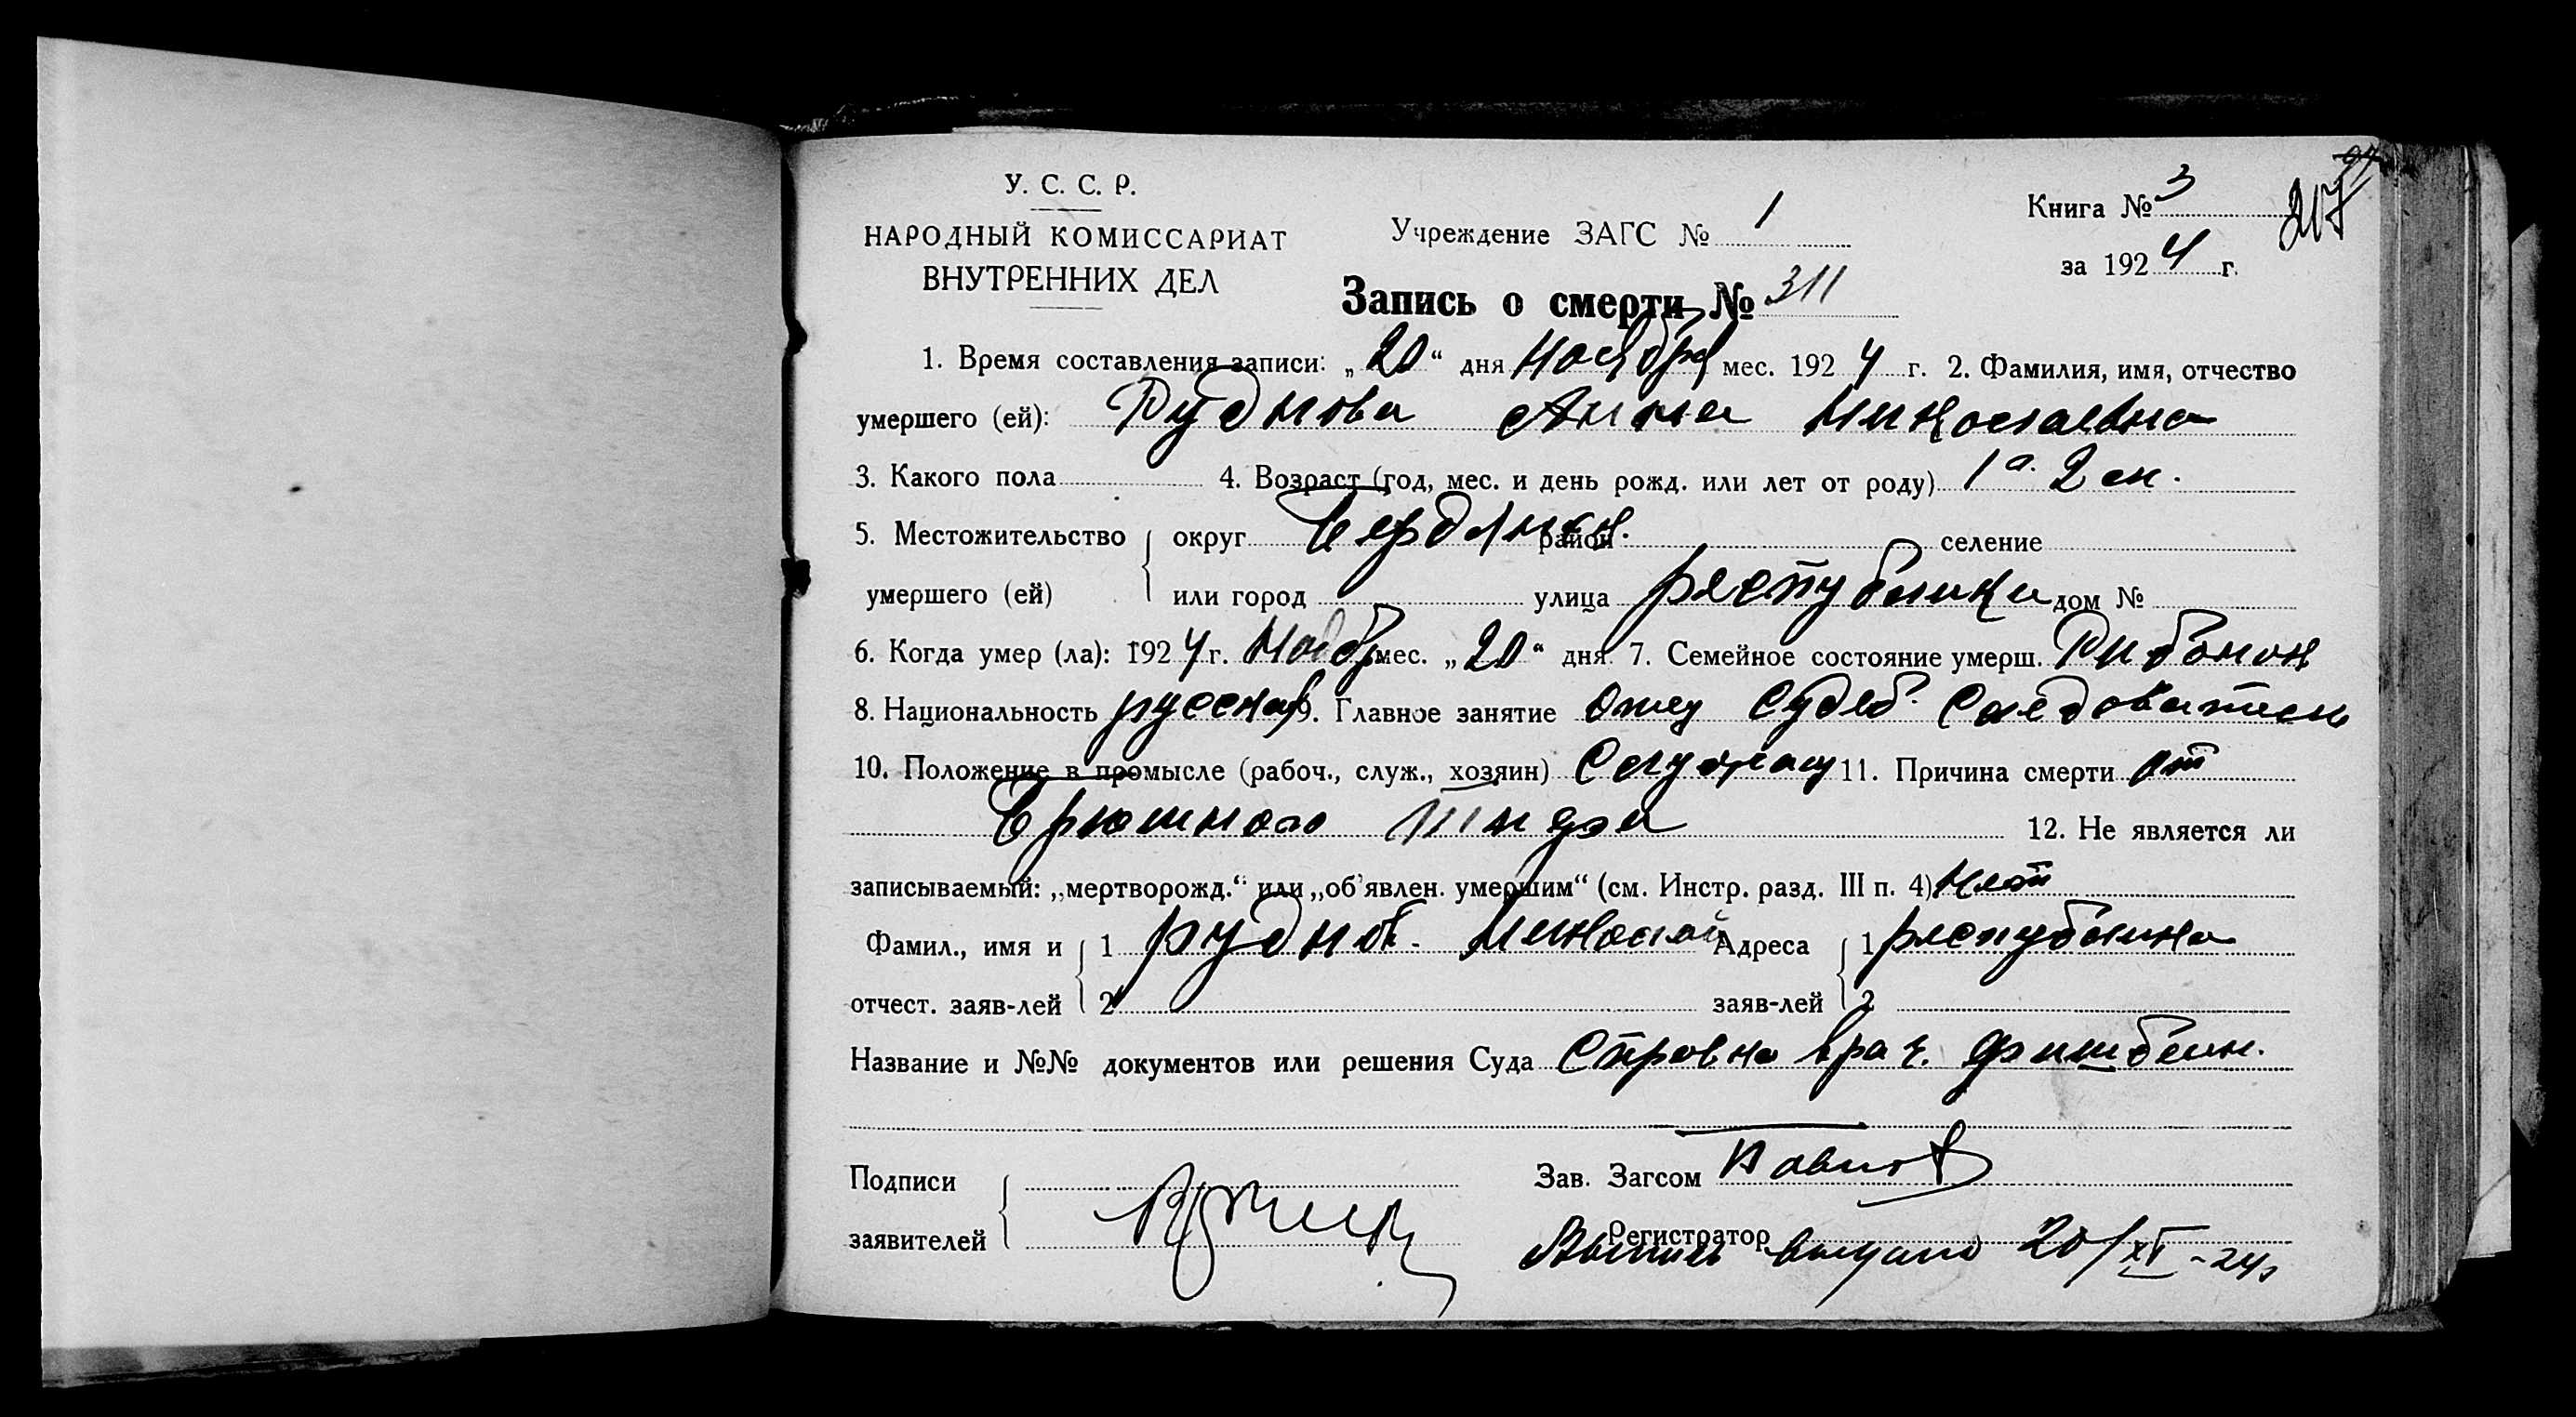 У. С. С. Р.
НАРОДНЫЙ КОМИССАРИАТ
ВНУТРЕННИХ ДЕЛ
Учреждение ЗАГС № 1
Книга № 3
207
за 1924 г.
Запись о смерти № 311
1. Время составления записи: „20“ дня Ноября мес. 1924 г. 2. Фамилия, имя, отчество
умершего (ей): Руднова Анна Николаевна
3. Какого пола 4. Возраст (год, мес. и день рожд. или лет от роду) 1 г. 2 м.
5. Местожительство умершего (ей) округ Бердянск. район селение
или город улица республики дом №
6. Когда умер (ла): 1924 г. Нояб мес. „20“ дня 7. Семейное состояние умерш. Ребёнок
8. Национальность русская 9. Главное занятие Отец Судеб. Следователь
10. Положение в промысле (рабоч., служ., хозяин) Служащ 11. Причина смерти от
Брюшного Тифа 12. Не является ли
записываемый: „мертворожд.“ или „об'явлен. умершим“ (см. Инстр. разд. III п. 4) нет
Фамил., имя и отчест. заяв-лей 1 Руднов Николай Адреса заяв-лей 1 республика
2 2
Название и №№ документов или решения Суда Справка врач. Фишбейн.
Подписи заявителей
Зав. Загсом
Регистратор
Выпись выдана 20/XI-24г